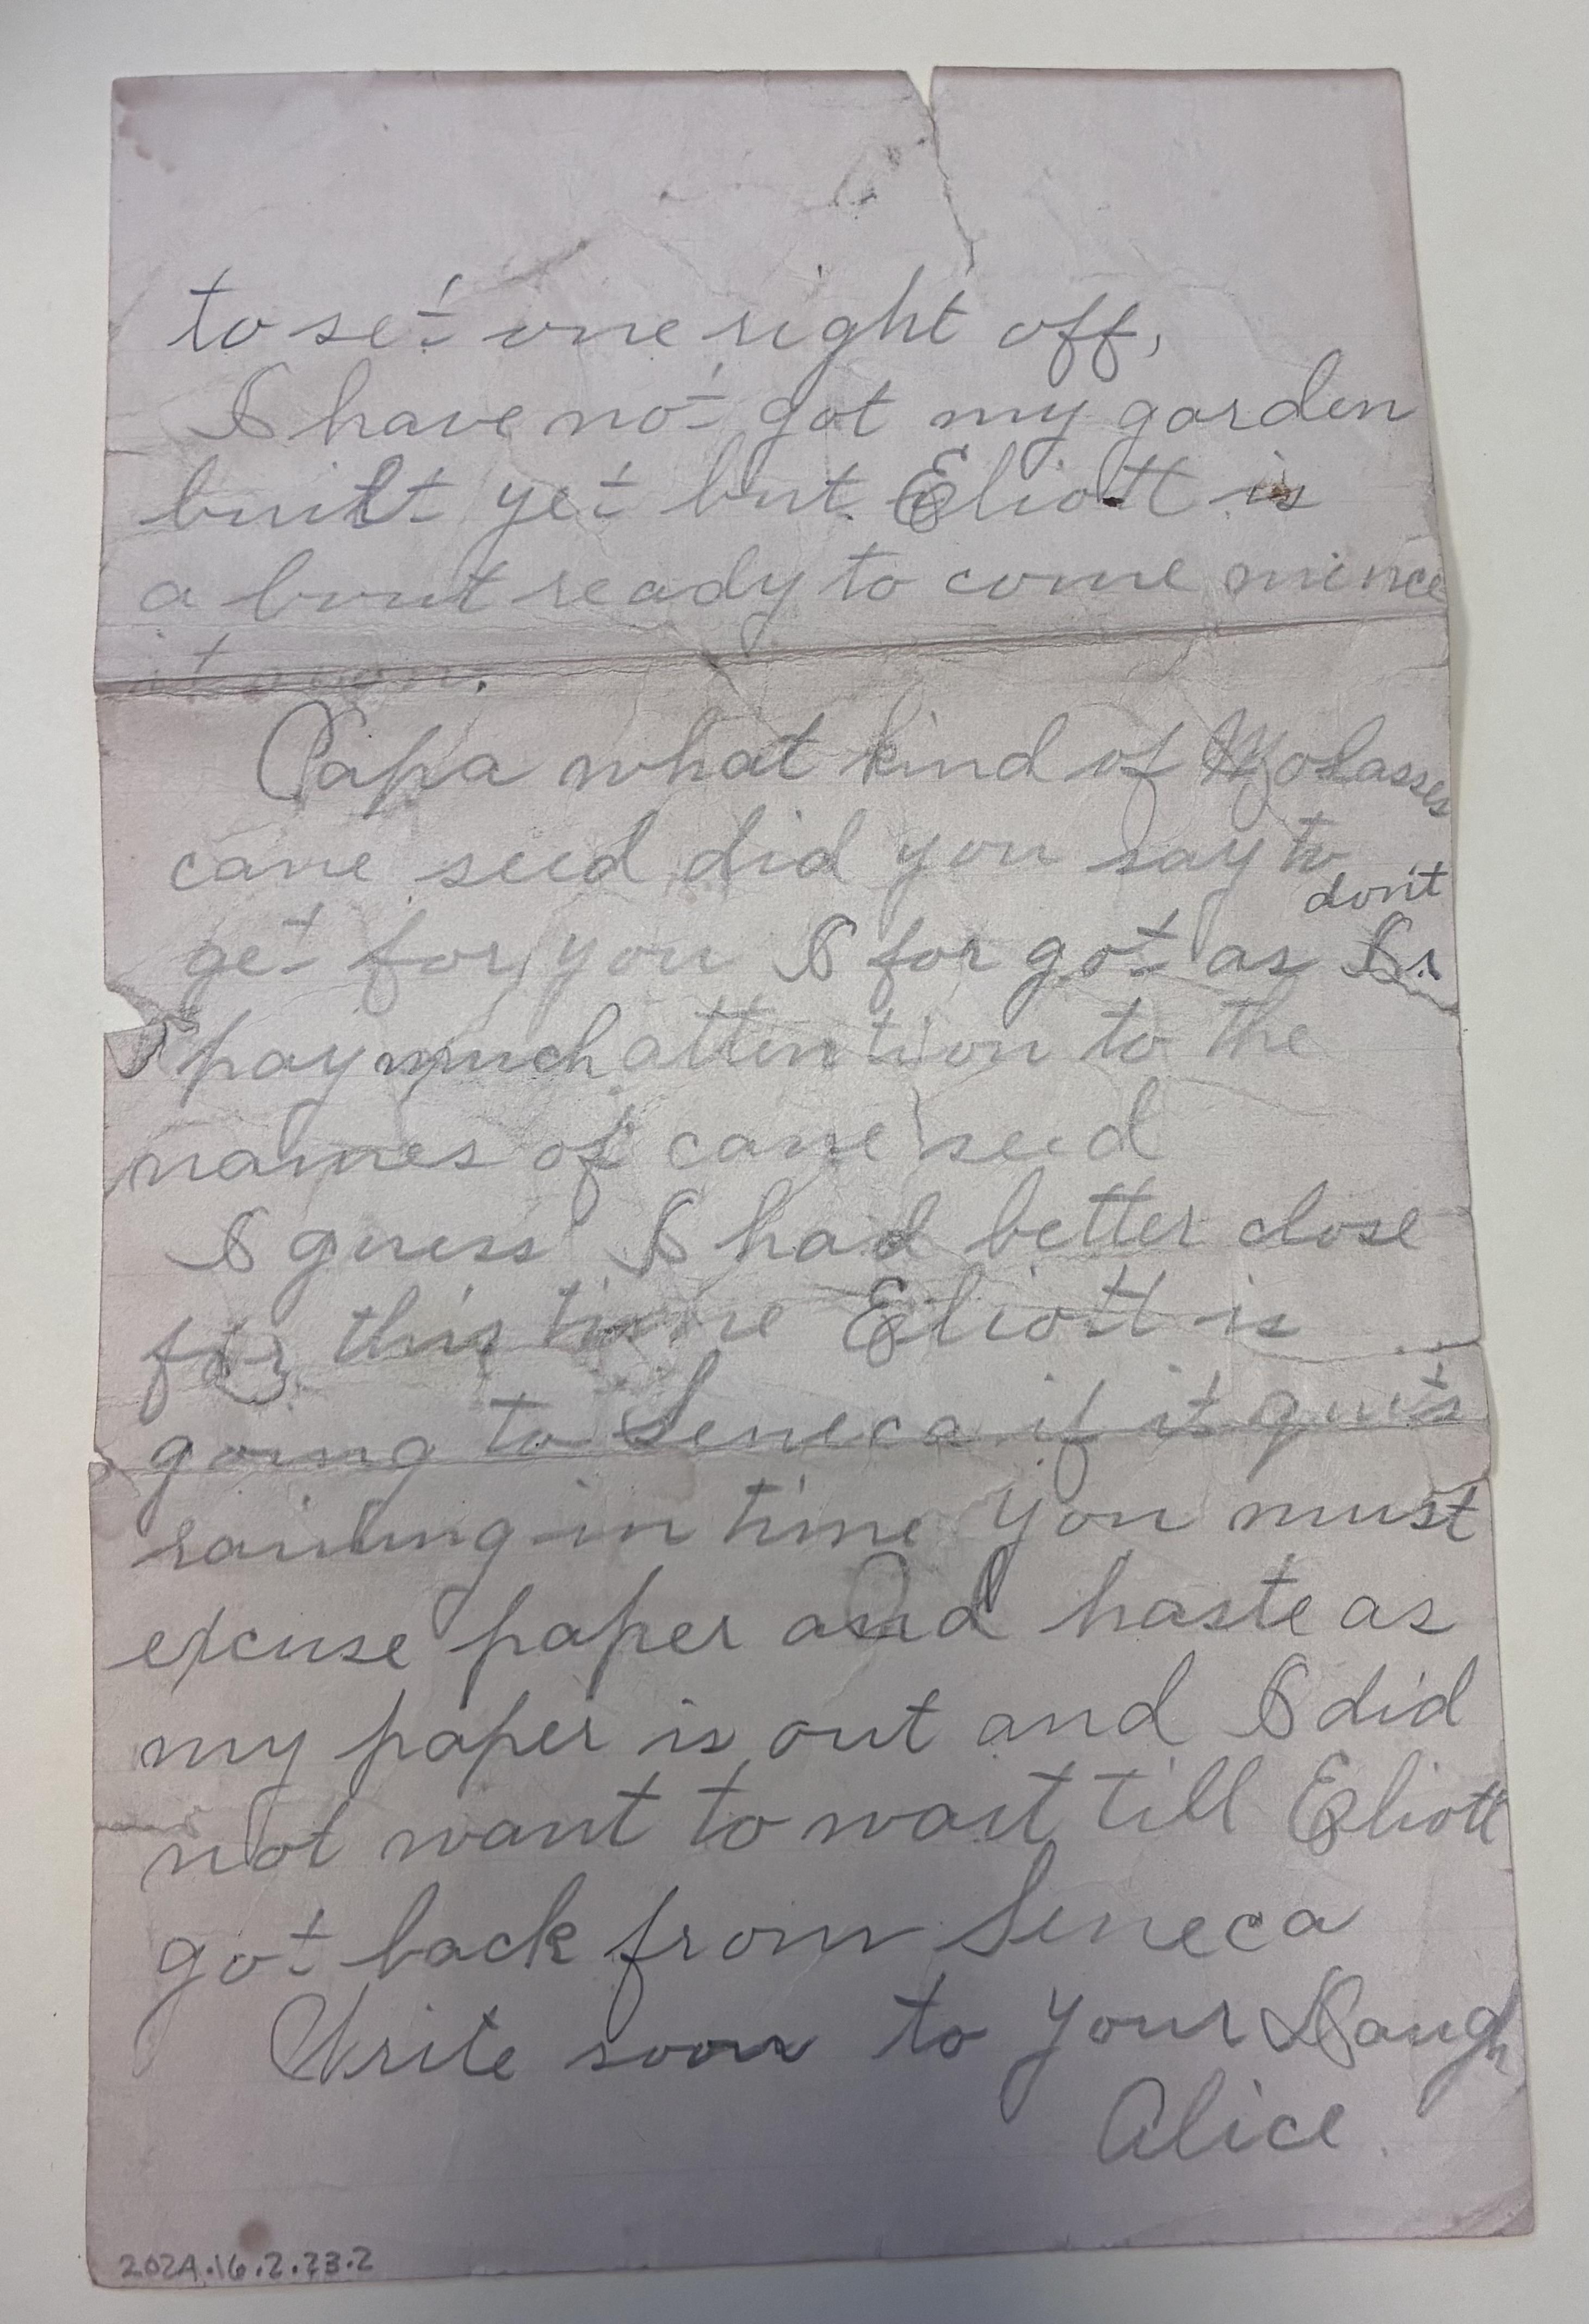 to set one right off,
I have not got my garden
built yet but Eliott is
a bout ready to come mince
it soon.
Papa what kind of Molasses
cane seed did you say to
get for you I for got as I don't
pay much attention to the
names of cane seed
I guess I had better close
for this time Eliott is
going to Seneca if it quits
raining in time you must
excuse paper and haste as
my paper is out and I did
not want to wait till Eliott
got back from Seneca
Write soon to your Daugh
Alice.
2024.16.2.23.2